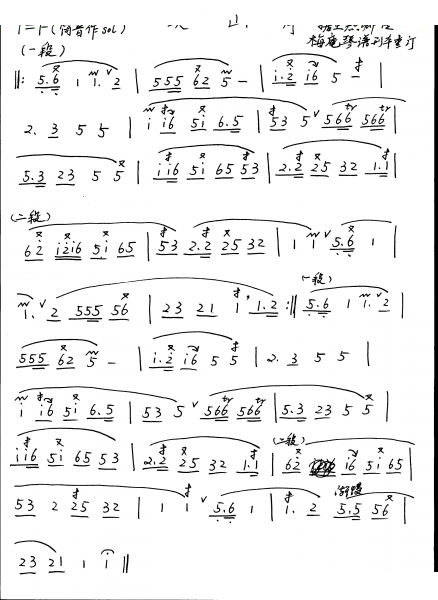 (筒音作 sol)
梅庵琴譜
(一段)
‖: 5.6 1 1. 2 | 555 62 5 – | i.2 i6 5 5 |
2. 3 5 5 | i i6 5i 6.5 | 53 5 566 566 |
5.3 23 5 5 | ii6 5i 65 53 | 2.2 25 32 1.1 |
(二段)
62 i2i6 5i 65 | 53 2.2 25 32 | 1 1 5.6 1 |
(一段)
1. 2 555 56 | 23 21 1 1.2 :‖ 5.6 1 1. 2 |
555 62 5 – | i.2 i6 5 5 | 2. 3 5 5 |
i i6 5i 6.5 | 53 5 566 566 | 5.3 23 5 5 |
(二段)
ii6 5i 65 53 | 2.2 25 32 1.1 | 62 i6 5i 65 |
53 2 25 32 | 1 1 5.6 1 | 1. 2 5.5 56 |
23 21 1 i ‖